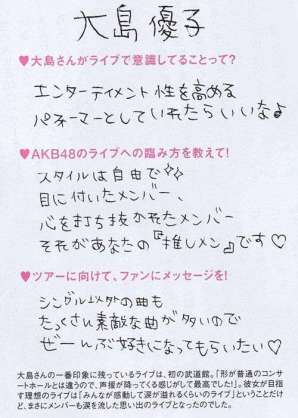 大島優子
♥大島さんがライブで意識してることって?
エンターティメント性を高める
パネーマーとしていれたらいいな♪
♥AKB48のライブへの臨み方を教えて!
スタイルは自由で✧✧
目に付いたメンバー、
心を打ち抜かれたメンバー
それがあなたの『推しメン』です♡
♥ツアーに向けて、ファンにメッセージを!
シングル以外の曲も
たっくさん素敵な曲が多いので
ぜーんぶ好きになってもらいたい♡
大島さんの一番印象に残っているライブは、初の武道館。「形が普通のコン
サートホールとは違うので、声援が降ってくる感じがして最高でした!」。彼女が目指
す理想のライブは「みんなが感動して涙が溢れるくらいのライブ」ということだけ
ど、まさにメンバーも涙を流した思い出のライブとなったのでした。